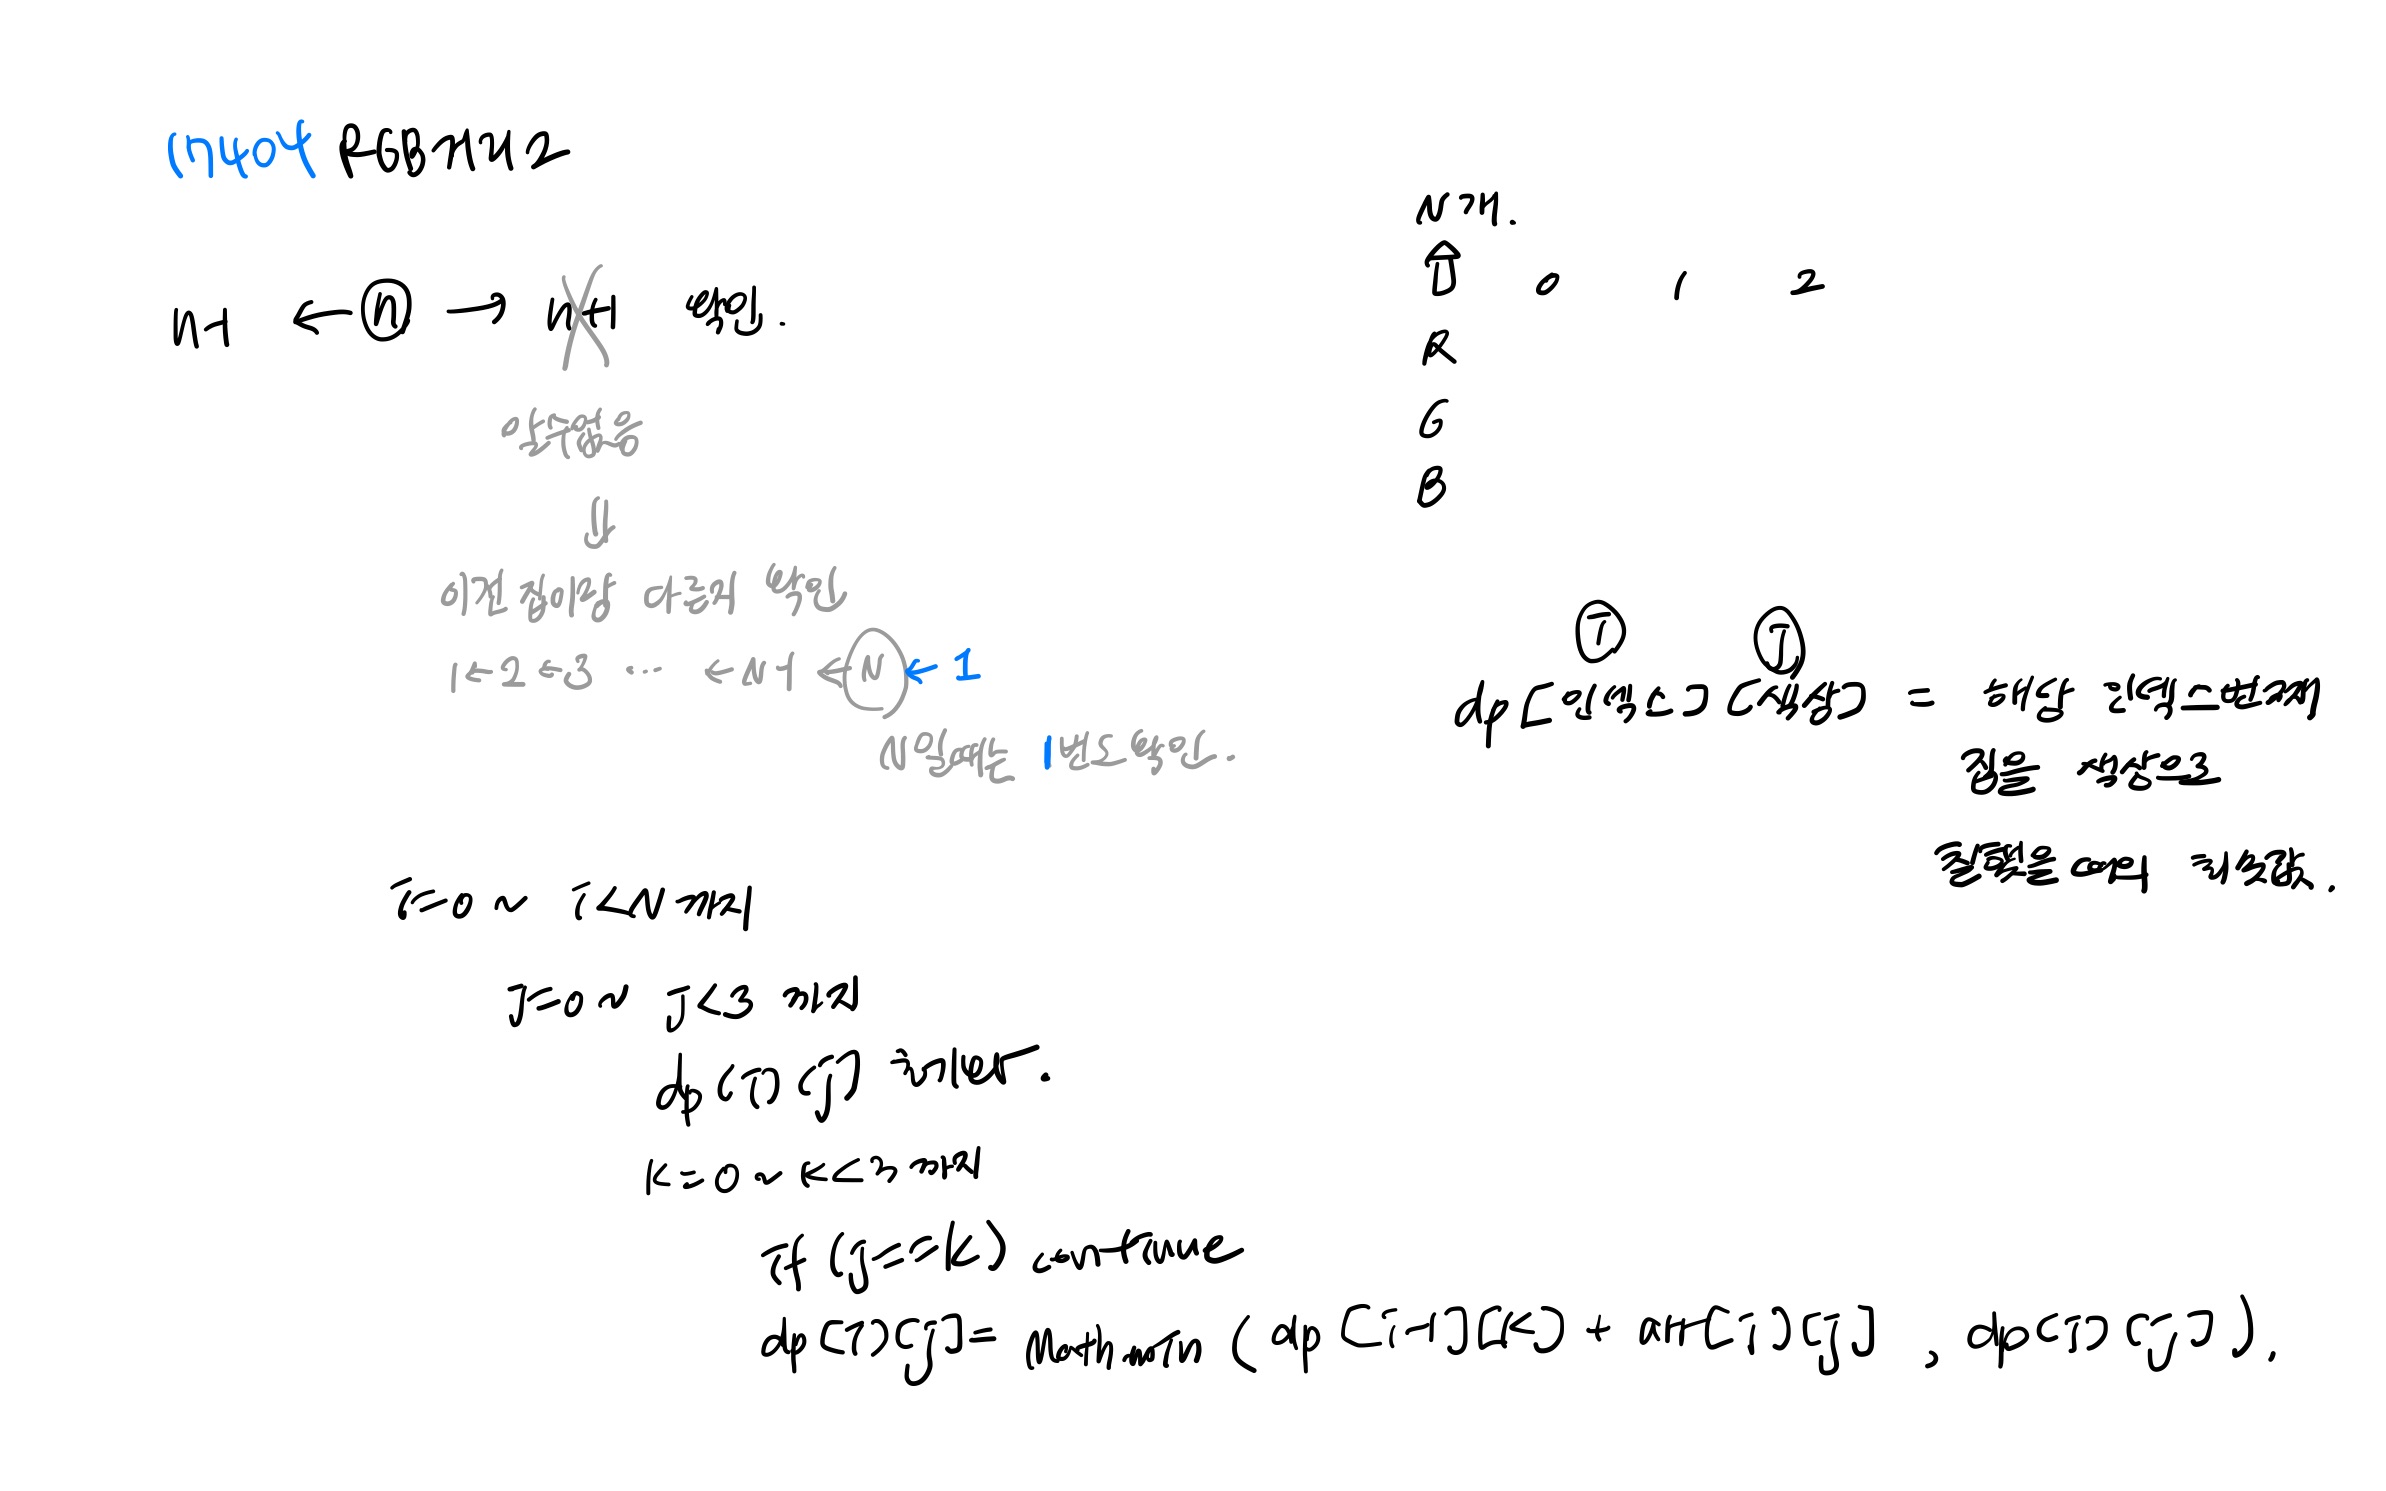 17404 RGB거리 2
N개.
n-1 ← n → n+1 확인.
0 1 2
R
G
B
안 써도 됨
이전 집이랑 다른지 확인
1 ← 2 ← 3 ... ← N-1 ← N ← 1
N 일때는 1번도 확인.
I J
dp[인덱스][색상] = 해당 인덱스 번째
집을 색상으로
칠했을 때의 최솟값.
i=0 ~ i<N 까지
j=0 ~ j<3 까지
dp[i][j] 초기화.
k=0 ~ k<3 까지
if (j==k) continue
dp[i][j] = Math.min (dp[i-1][k] + arr[i][j], dp[i][j]).